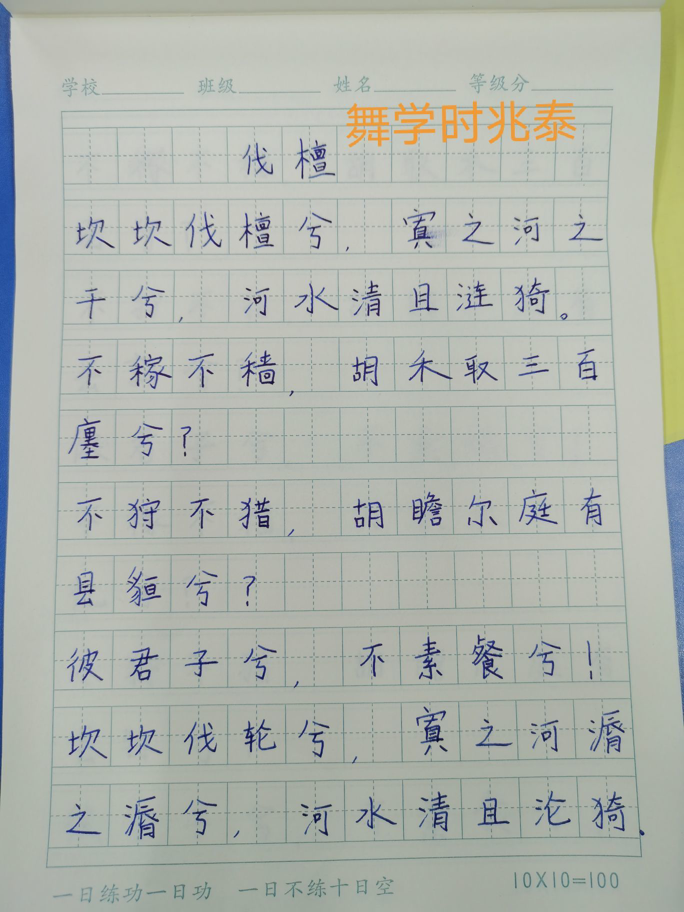 学校 班级 姓名 等级分
舞学时兆泰
伐檀
坎坎伐檀兮, 寘之河之
干兮, 河水清且涟猗。
不稼不穑, 胡禾取三百
廛兮?
不狩不猎, 胡瞻尔庭有
县貆兮?
彼君子兮, 不素餐兮!
坎坎伐轮兮, 寘之河漘
之漘兮, 河水清且沦猗.
一日练功一日功 一日不练十日空
10X10=100